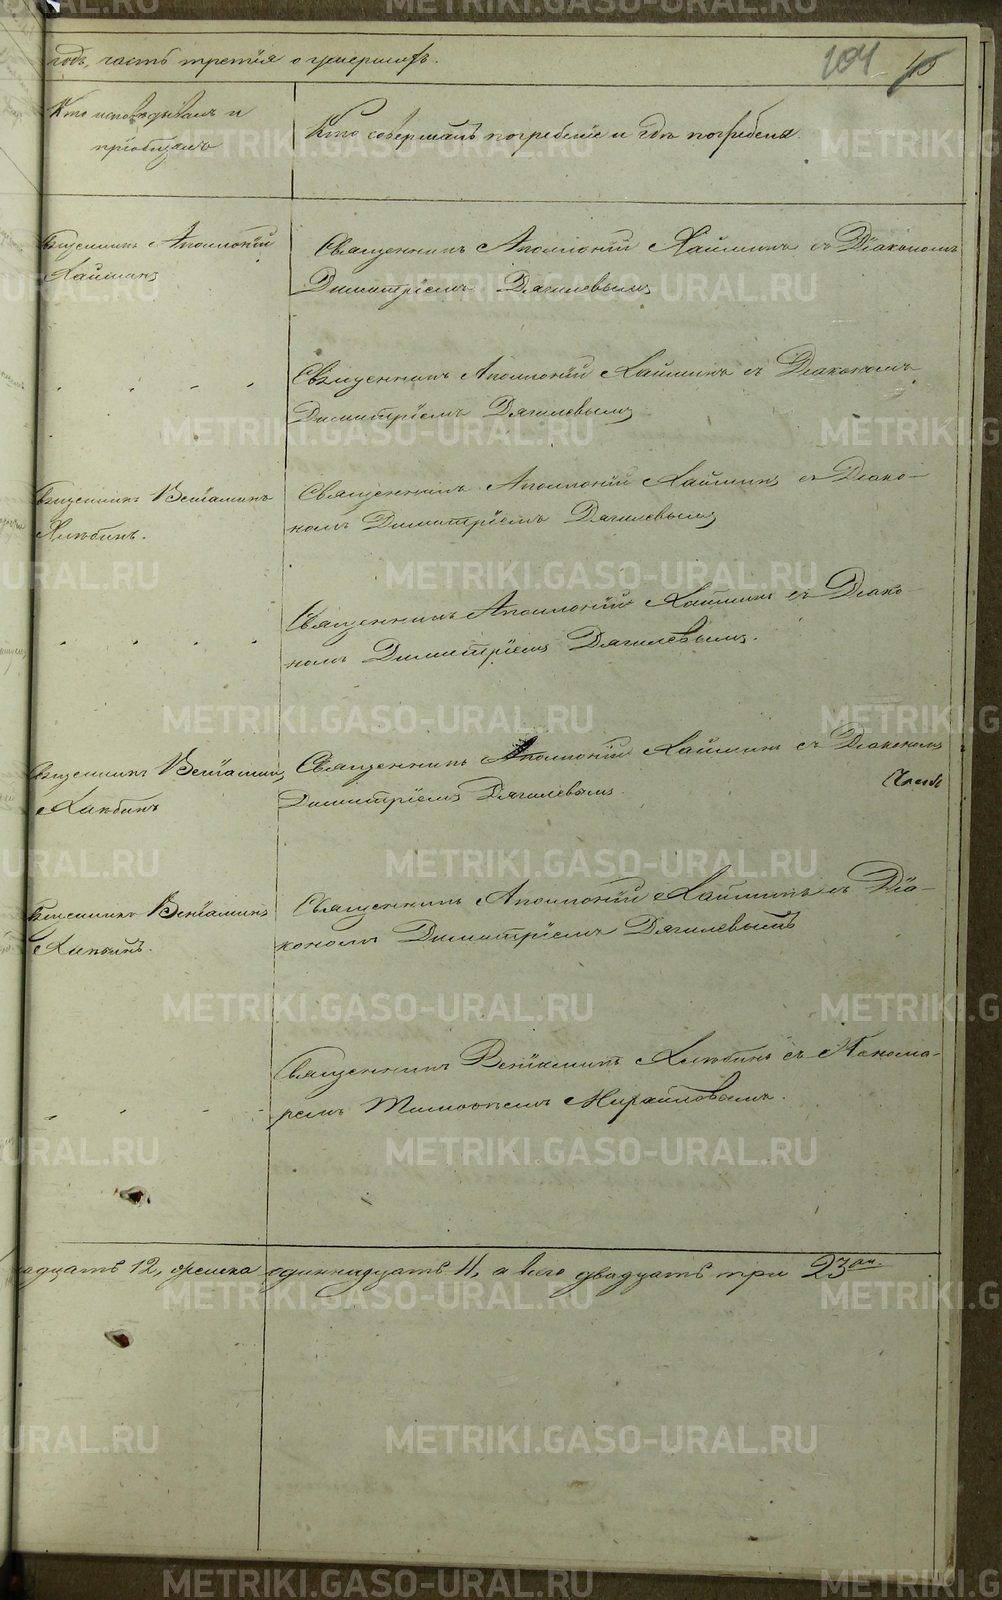 годъ, часть третія о умершихъ.
104
Кто исповѣдывалъ и
пріобщалъ
Кто совершалъ погребеніе и гдѣ погребены.
Священникъ Аполлоній
Священникъ Аполлоній Лаймикъ съ Діакономъ
Димитріемъ Дягилевымъ
Священникъ Аполлоній съ Діакономъ
Димитріемъ Дягилевымъ
Священникъ Веніаминъ
Хлѣбинъ.
Священникъ Аполлоній съ Діако-
номъ Димитріемъ Дягилевымъ
Священникъ Аполлоній съ Діако-
номъ Димитріемъ Дягилевымъ.
Священникъ Веніаминъ
Хлѣбинъ
Священникъ Аполлоній съ Діакономъ
Димитріемъ Дягилевымъ.
Священникъ Веніаминъ
Хлѣбинъ.
Священникъ Аполлоній съ Діа-
кономъ Димитріемъ Дягилевымъ
Священникъ Веніаминъ Хлѣбинъ съ Понома-
ремъ Тимофеемъ
надцать 12, женска одиннадцать 11, а всего двадцать три 23
METRIKI.GASO-URAL.RU